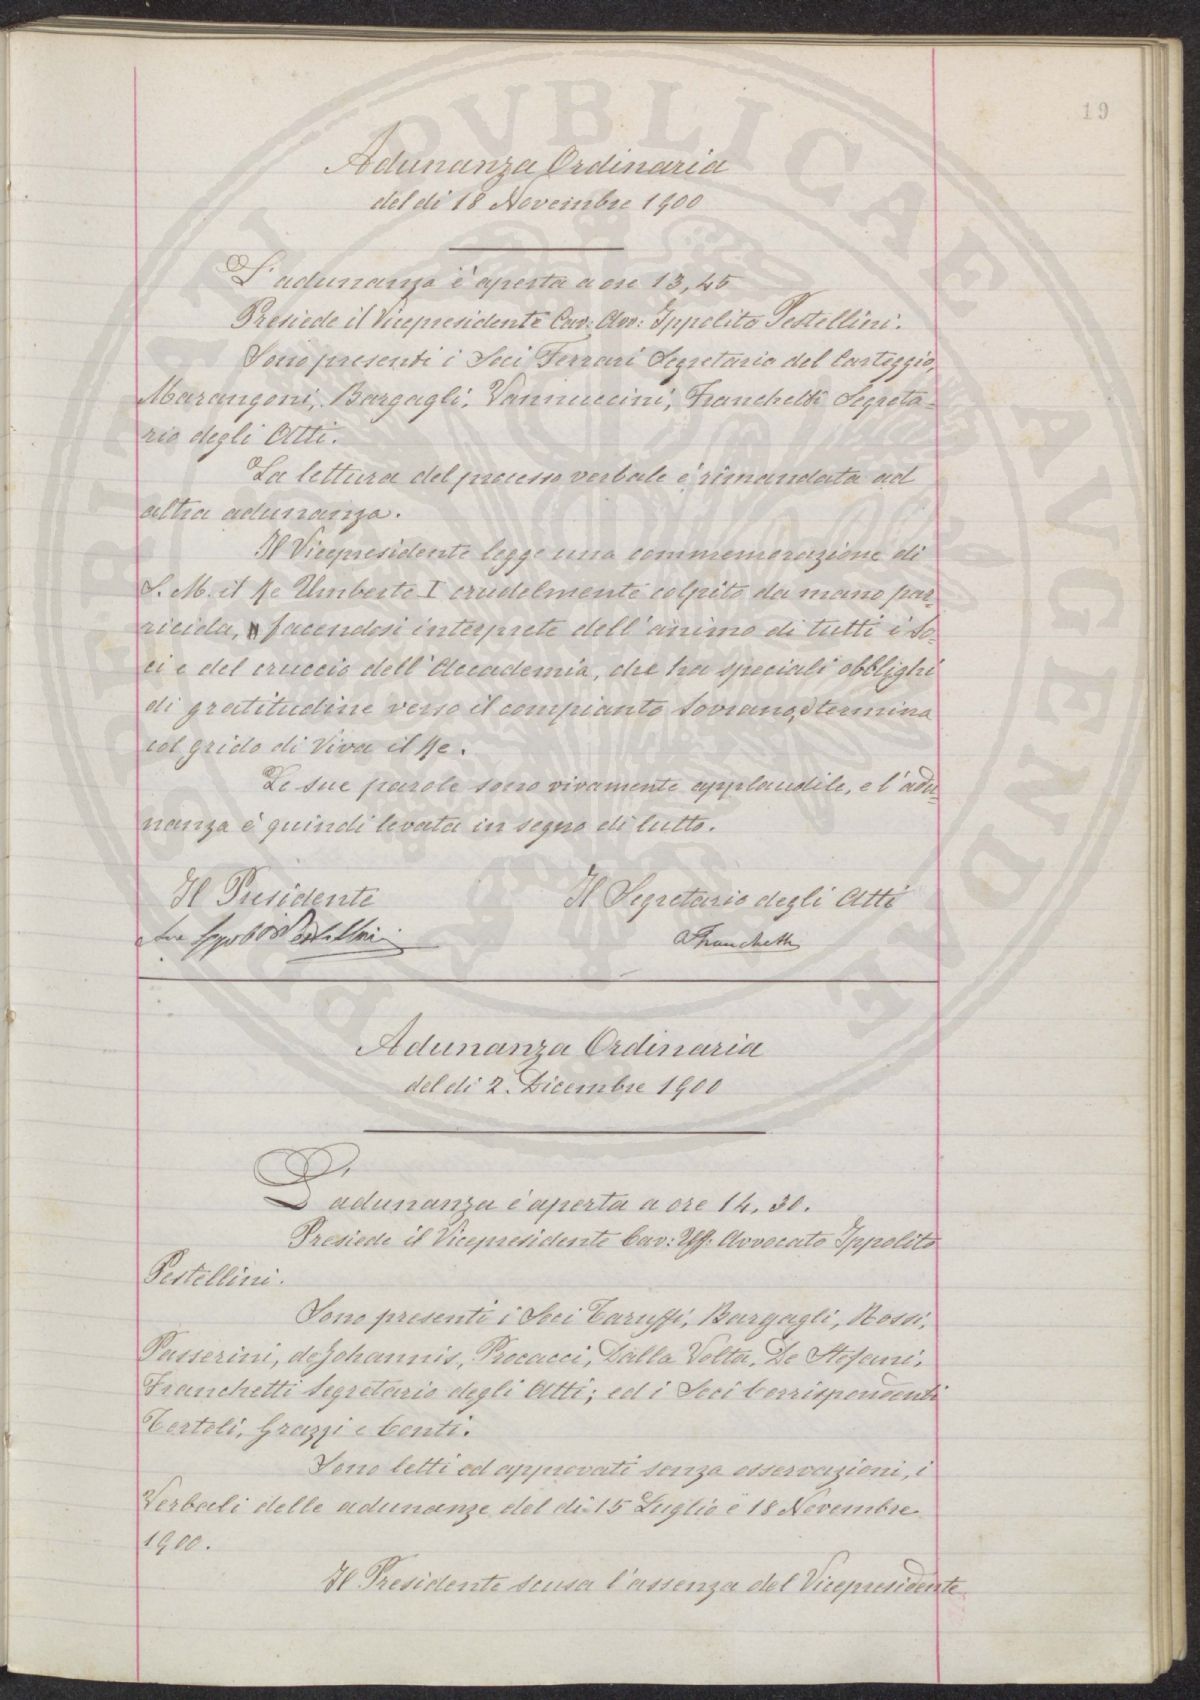 19
Adunanza Ordinaria
del dì 18 Novembre 1900
L'adunanza è aperta a ore 13,45
Presiede il Vicepresidente Cav: Avv: Ippolito Pestellini.
Sono presenti i Soci Ferrari Segretario del Carteggio,
Marangoni, Bargagli, Vannuccini, Franchetti Segreta-
rio degli Atti.
La lettura del processo verbale è rimandata ad
altra adunanza.
Il Vicepresidente legge una commemorazione di
S. M. il Re Umberto I crudelmente colpito da mano par-
ricida, facendosi interprete dell'animo di tutti i So-
ci e del cruccio dell'Accademia, che ha speciali obblighi
di gratitudine verso il compianto Sovrano, e termina
col grido di Viva il Re.
Le sue parole sono vivamente applaudite, e l'adu-
nanza è quindi levata in segno di lutto.
Il Presidente Il Segretario degli Atti
Ippolito Pestellini Franchetti
Adunanza Ordinaria
del dì 2. Dicembre 1900
L'adunanza è aperta a ore 14,30.
Presiede il Vicepresidente Cav: Uff: Avvocato Ippolito
Pestellini.
Sono presenti i Soci Taruffi, Bargagli, Rossi,
Passerini, de Johannis, Procacci, Dalla Volta, De Stefani,
Franchetti Segretario degli Atti; ed i Soci Corrispondenti
Tertoli, Grazzi e Conti.
Sono letti ed approvati senza osservazioni, i
Verbali delle adunanze del dì 15 Luglio e 18 Novembre
1900.
Il Presidente scusa l'assenza del Vicepresidente
PROSPERITATI PVBLICAE AVGENDAE